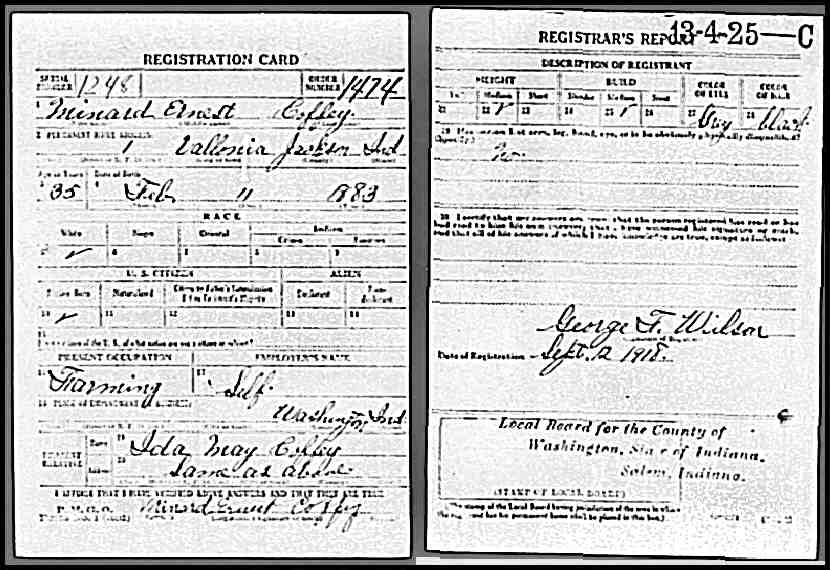 REGISTRATION CARD
SERIAL NUMBER 1248 ORDER NUMBER 1474
1 Minard Ernest Cofley
2 PERMANENT HOME ADDRESS
1 Vallonia Jackson Ind
Age in Years Date of Birth
35 Feb 11 1883
RACE
White Negro Oriental Indian
Citizen
5 ✓ 6 7 8 9
U. S. CITIZEN ALIEN
Native Born Naturalized Citizen by Father's Naturalization
10 ✓ 11 12 13 14
15
PRESENT OCCUPATION EMPLOYER'S NAME
16 Farming 17 Self
Washington Ind
Name 19 Ida May Cofley
Address 20 same as above
I AFFIRM THAT I HAVE VERIFIED ABOVE ANSWERS AND THAT THEY ARE TRUE
P. M. G. O.
REGISTRAR'S REPORT 13-4-25—C
DESCRIPTION OF REGISTRANT
HEIGHT BUILD COLOR OF EYES COLOR OF HAIR
Tall Medium Short Slender Medium Stout
21 22 ✓ 23 24 25 ✓ 26 27 28
29 Has person lost arm, leg, hand, eye, or is he obviously physically disqualified?
(Specify.)
No
30 I certify that my answers are true; that the person registered has read or has
had read to him his own answers; that I have witnessed his signature or mark,
and that all of his answers of which I have knowledge are true, except as follows:
George F. Wilson
Date of Registration Sept. 12 1918.
Local Board for the County of
Washington, State of Indiana,
Salem, Indiana.
(STAMP OF LOCAL BOARD)
(The stamp of the Local Board having jurisdiction of the area in which
the registrant has his permanent home shall be placed in this box.)